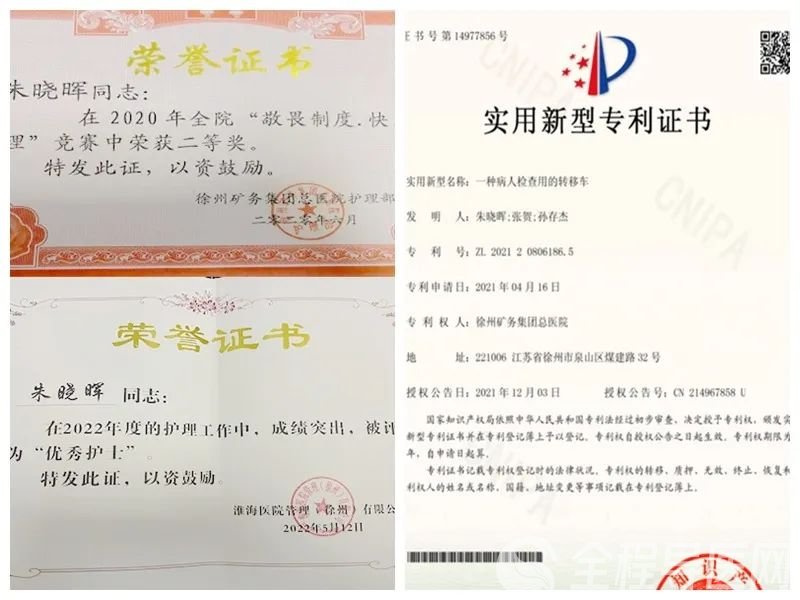 荣誉证书
朱晓晖同志：
在2020年全院“敬畏制度.快
理”竞赛中荣获二等奖。
特发此证，以资鼓励。
徐州矿务集团总医院护理部
二零二零年六月
荣誉证书
朱晓晖 同志：
在2022年度的护理工作中，成绩突出，被评
为“优秀护士”。
特发此证，以资鼓励。
淮海医院管理（徐州）有限公
2022年5月12日
证书号第14977856号
实用新型专利证书
实用新型名称：一种病人检查用的转移车
发 明 人：朱晓晖;张贺;孙存杰
专 利 号：ZL 2021 2 0806186.5
专利申请日：2021年04月16日
专 利 权 人：徐州矿务集团总医院
地 址：221006 江苏省徐州市泉山区煤建路32号
授权公告日：2021年12月03日 授权公告号：CN 214967858 U
国家知识产权局依照中华人民共和国专利法经过初步审查，决定授予专利权，颁发实
新型专利证书并在专利登记簿上予以登记。专利权自授权公告之日起生效。专利权期限为
年，自申请日起算。
专利证书记载专利权登记时的法律状况。专利权的转移、质押、无效、终止、恢复和
利权人的姓名或名称、国籍、地址变更等事项记载在专利登记簿上。
CNIPA
CNIPA
知识产
全程导医网